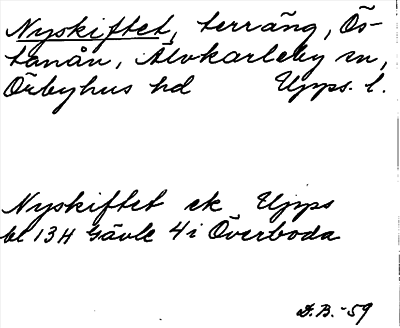 Nyskiftet, terräng, Ös-
tanån, Älvkarleby sn,
Örbyhus hd Upps. l.
Nyskiftet ek Upps
bl 13H Gävle 4i Överboda
D.B.-59